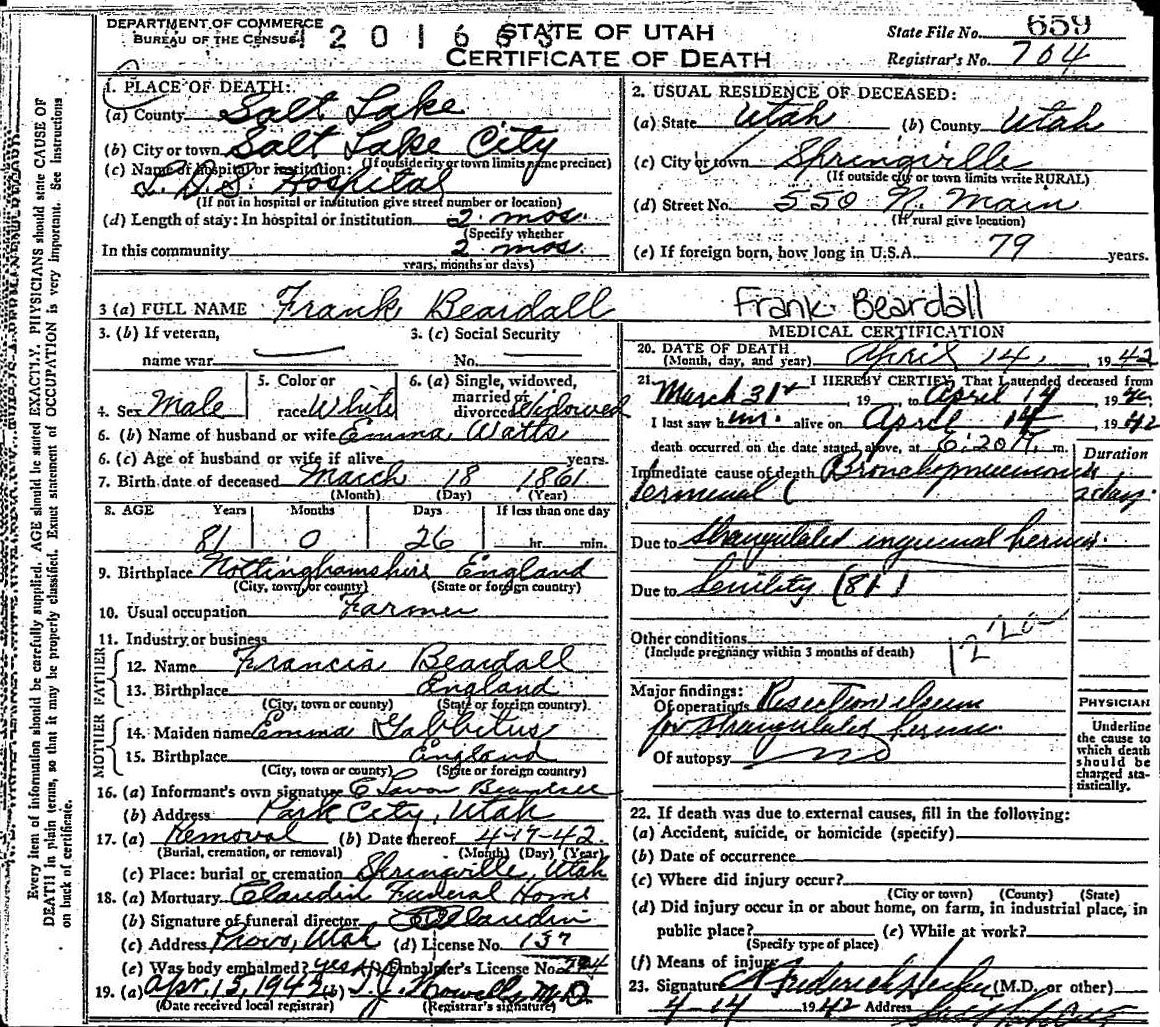 Every item of information should be carefully supplied. AGE should be stated EXACTLY. PHYSICIANS should state CAUSE OF
DEATH in plain terms, so that it may be properly classified. Exact statement of OCCUPATION is very important. See Instructions
on back of certificate.
DEPARTMENT OF COMMERCE
BUREAU OF THE CENSUS
STATE OF UTAH
CERTIFICATE OF DEATH
State File No. 659
Registrar's No. 704
1. PLACE OF DEATH:
(a) County Salt Lake
(b) City or town Salt Lake City
(If outside city or town limits name precinct)
(c) Name of hospital or institution:
L.D.S. Hospital
(If not in hospital or institution give street number or location)
(d) Length of stay: In hospital or institution 2 mos.
(Specify whether
In this community 2 mos.
years, months or days)
2. USUAL RESIDENCE OF DECEASED:
(a) State Utah (b) County Utah
(c) City or town Springville
(If outside city or town limits write RURAL)
(d) Street No. 550 N. Main
(If rural give location)
(e) If foreign born, how long in U.S.A. 79 years.
3 (a) FULL NAME Frank Beardall Frank Beardall
3. (b) If veteran,
name war
3. (c) Social Security
No.
4. Sex Male
5. Color or
race White
6. (a) Single, widowed,
married or
divorced Widowed
6. (b) Name of husband or wife Emma Watts
6. (c) Age of husband or wife if alive years.
7. Birth date of deceased March 18 1861
(Month) (Day) (Year)
8. AGE Years Months Days If less than one day
81 0 26 hr. min.
9. Birthplace Nottinghamshire England
(City, town, or county) (State or foreign country)
10. Usual occupation Farmer
11. Industry or business
FATHER
12. Name Francis Beardall
13. Birthplace England
(City, town or county) (State or foreign country)
MOTHER
14. Maiden name Emma Gabbitus
15. Birthplace England
(City, town or county) (State or foreign country)
16. (a) Informant's own signature
(b) Address Park City, Utah
17. (a) Removal (b) Date thereof 4-17-42.
(Burial, cremation, or removal) (Month) (Day) (Year)
(c) Place: burial or cremation Springville, Utah
18. (a) Mortuary Claudin Funeral Home
(b) Signature of funeral director Claudin
(c) Address Provo, Utah (d) License No. 137
(e) Was body embalmed? yes Embalmer's License No.
19. (a) Apr. 15, 1942 (b) M.D.
(Date received local registrar) (Registrar's signature)
MEDICAL CERTIFICATION
20. DATE OF DEATH
(Month, day, and year) April 14, 1942
21. I HEREBY CERTIFY, That I attended deceased from
March 31st 19 , to April 14 19 42
I last saw him alive on April 14 1942
death occurred on the date stated above, at 6:20 m.
Duration
Immediate cause of death Bronchopneumonia
terminal
Due to strangulated inguinal hernia.
Due to Senility (81)
Other conditions
(Include pregnancy within 3 months of death)
Major findings:
Of operations Resection ileum
for strangulated hernia
Of autopsy no
PHYSICIAN
Underline
the cause to
which death
should be
charged sta-
tistically.
22. If death was due to external causes, fill in the following:
(a) Accident, suicide, or homicide (specify)
(b) Date of occurrence
(c) Where did injury occur?
(City or town) (County) (State)
(d) Did injury occur in or about home, on farm, in industrial place, in
public place? (e) While at work?
(Specify type of place)
(f) Means of injury
23. Signature (M.D., or other)
4-14 1942 Address Salt Lake City